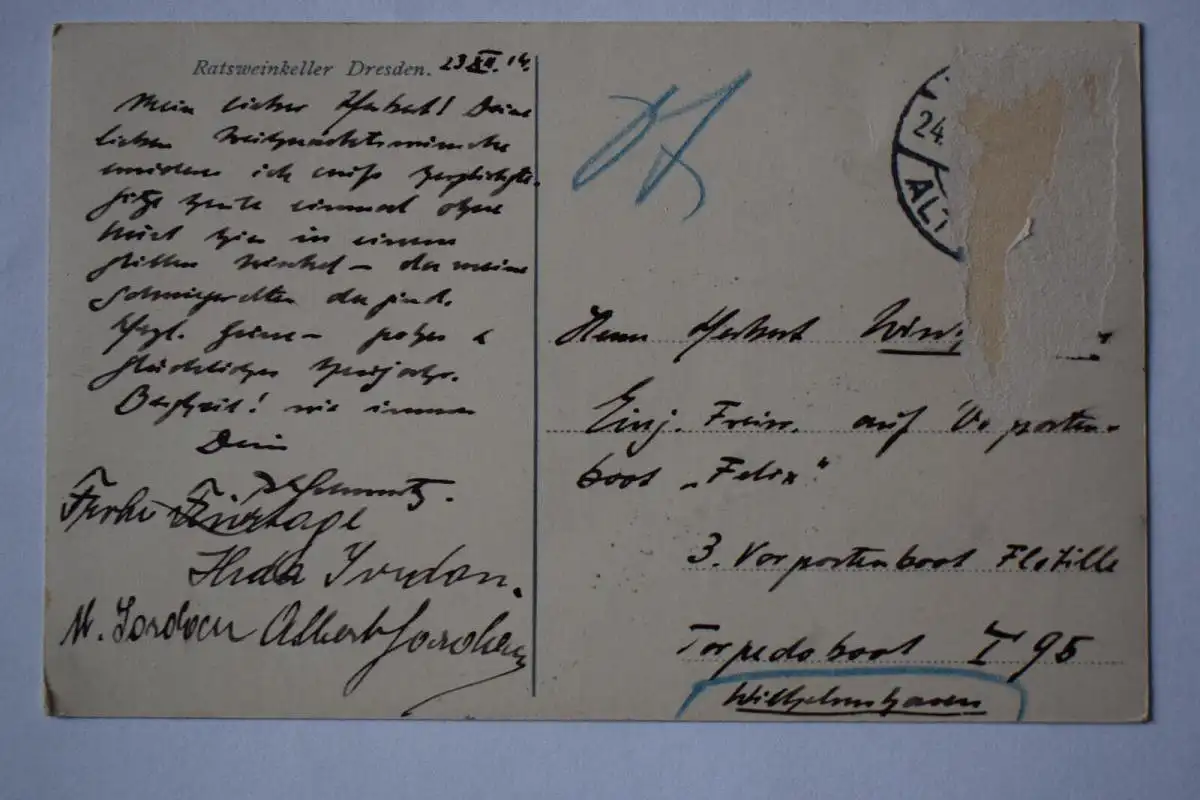 Ratsweinkeller Dresden. 23 XII. 14.
Mein lieber Herbert! Deine
lieben Weihnachtswünsche
erwidere ich aufs herzlichste.
Sitze heute einmal ohne
hier in einem
stillen Winkel – da meine
Schwiegereltern da sind.
Herzl. Grüsse – frohes &
glückliches Neujahr.
wie immer
Dein
Schmitz.
Frohe Feiertage
Hilda Jordan.
M. Jordan Albert Jordan
24.
ALT
Herrn Herbert
Einj. Freiw. auf Vorposten-
boot „Felix“
3. Vorpostenboot Flotille
Torpedoboot T 95
Wilhelmshaven